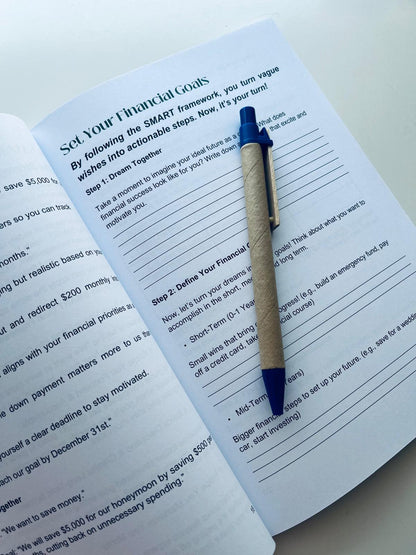 save $5,000 for
ers so you can track
months."
ging but realistic based on
out and redirect $200 monthly
aligns with your financial priorities
down payment matters more to us
yourself a clear deadline to stay motivated.
each our goal by December 31st."
ogether
"We want to save money."
"We will save $5,000 for our honeymoon by saving $500
cutting back on unnecessary spending."
Set Your Financial Goals
By following the SMART framework, you turn vague
wishes into actionable steps. Now, it's your turn!
Step 1: Dream Together
Take a moment to imagine your ideal future as a What does
financial success look like for you? Write down that excite and
motivate you.
Step 2: Define Your Financial
Now, let's turn your dreams in goals! Think about what you want to
accomplish in the short, me nd long term.
• Short-Term (0-1 Year
Small wins that bring progress! (e.g., build an emergency fund, pay
off a credit card, take financial course)
• Mid-Term ears)
Bigger financial steps to set up your future. (e.g., save for a wedding
car, start investing)